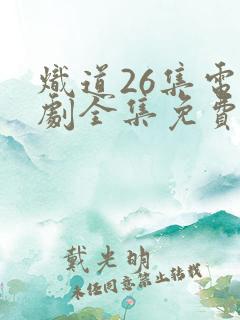 熾道26集電
劇全集免費
戴光明
未任同意禁止轉載